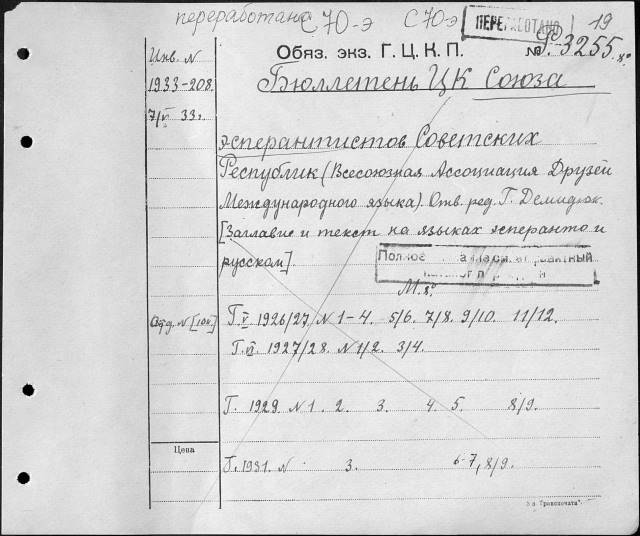 переработано С70-э С70-э ПЕРЕРАБОТАНО 19
Обяз. экз. Г. Ц. К. П. № Р-3255. 8°
Инв. N
1933-208
7/VI 33г.
Бюллетень ЦК Союза
эсперантистов Советских
Республик (Всесоюзная Ассоциация Друзей
Международного языка). Отв. ред. Г. Демидюк.
[Заглавие и текст на языках эсперанто и
русском].
Полное
М. 8°
Г. V. 1926/27. N 1-4. 5/6. 7/8. 9/10. 11/12.
Г. VI. 1927/28. N 1/2. 3/4.
Г. 1929. N 1. 2. 3. 4. 5. 8/9.
Цена
Г. 1931. N 3. 6-7, 8/9.
"Транспечати".